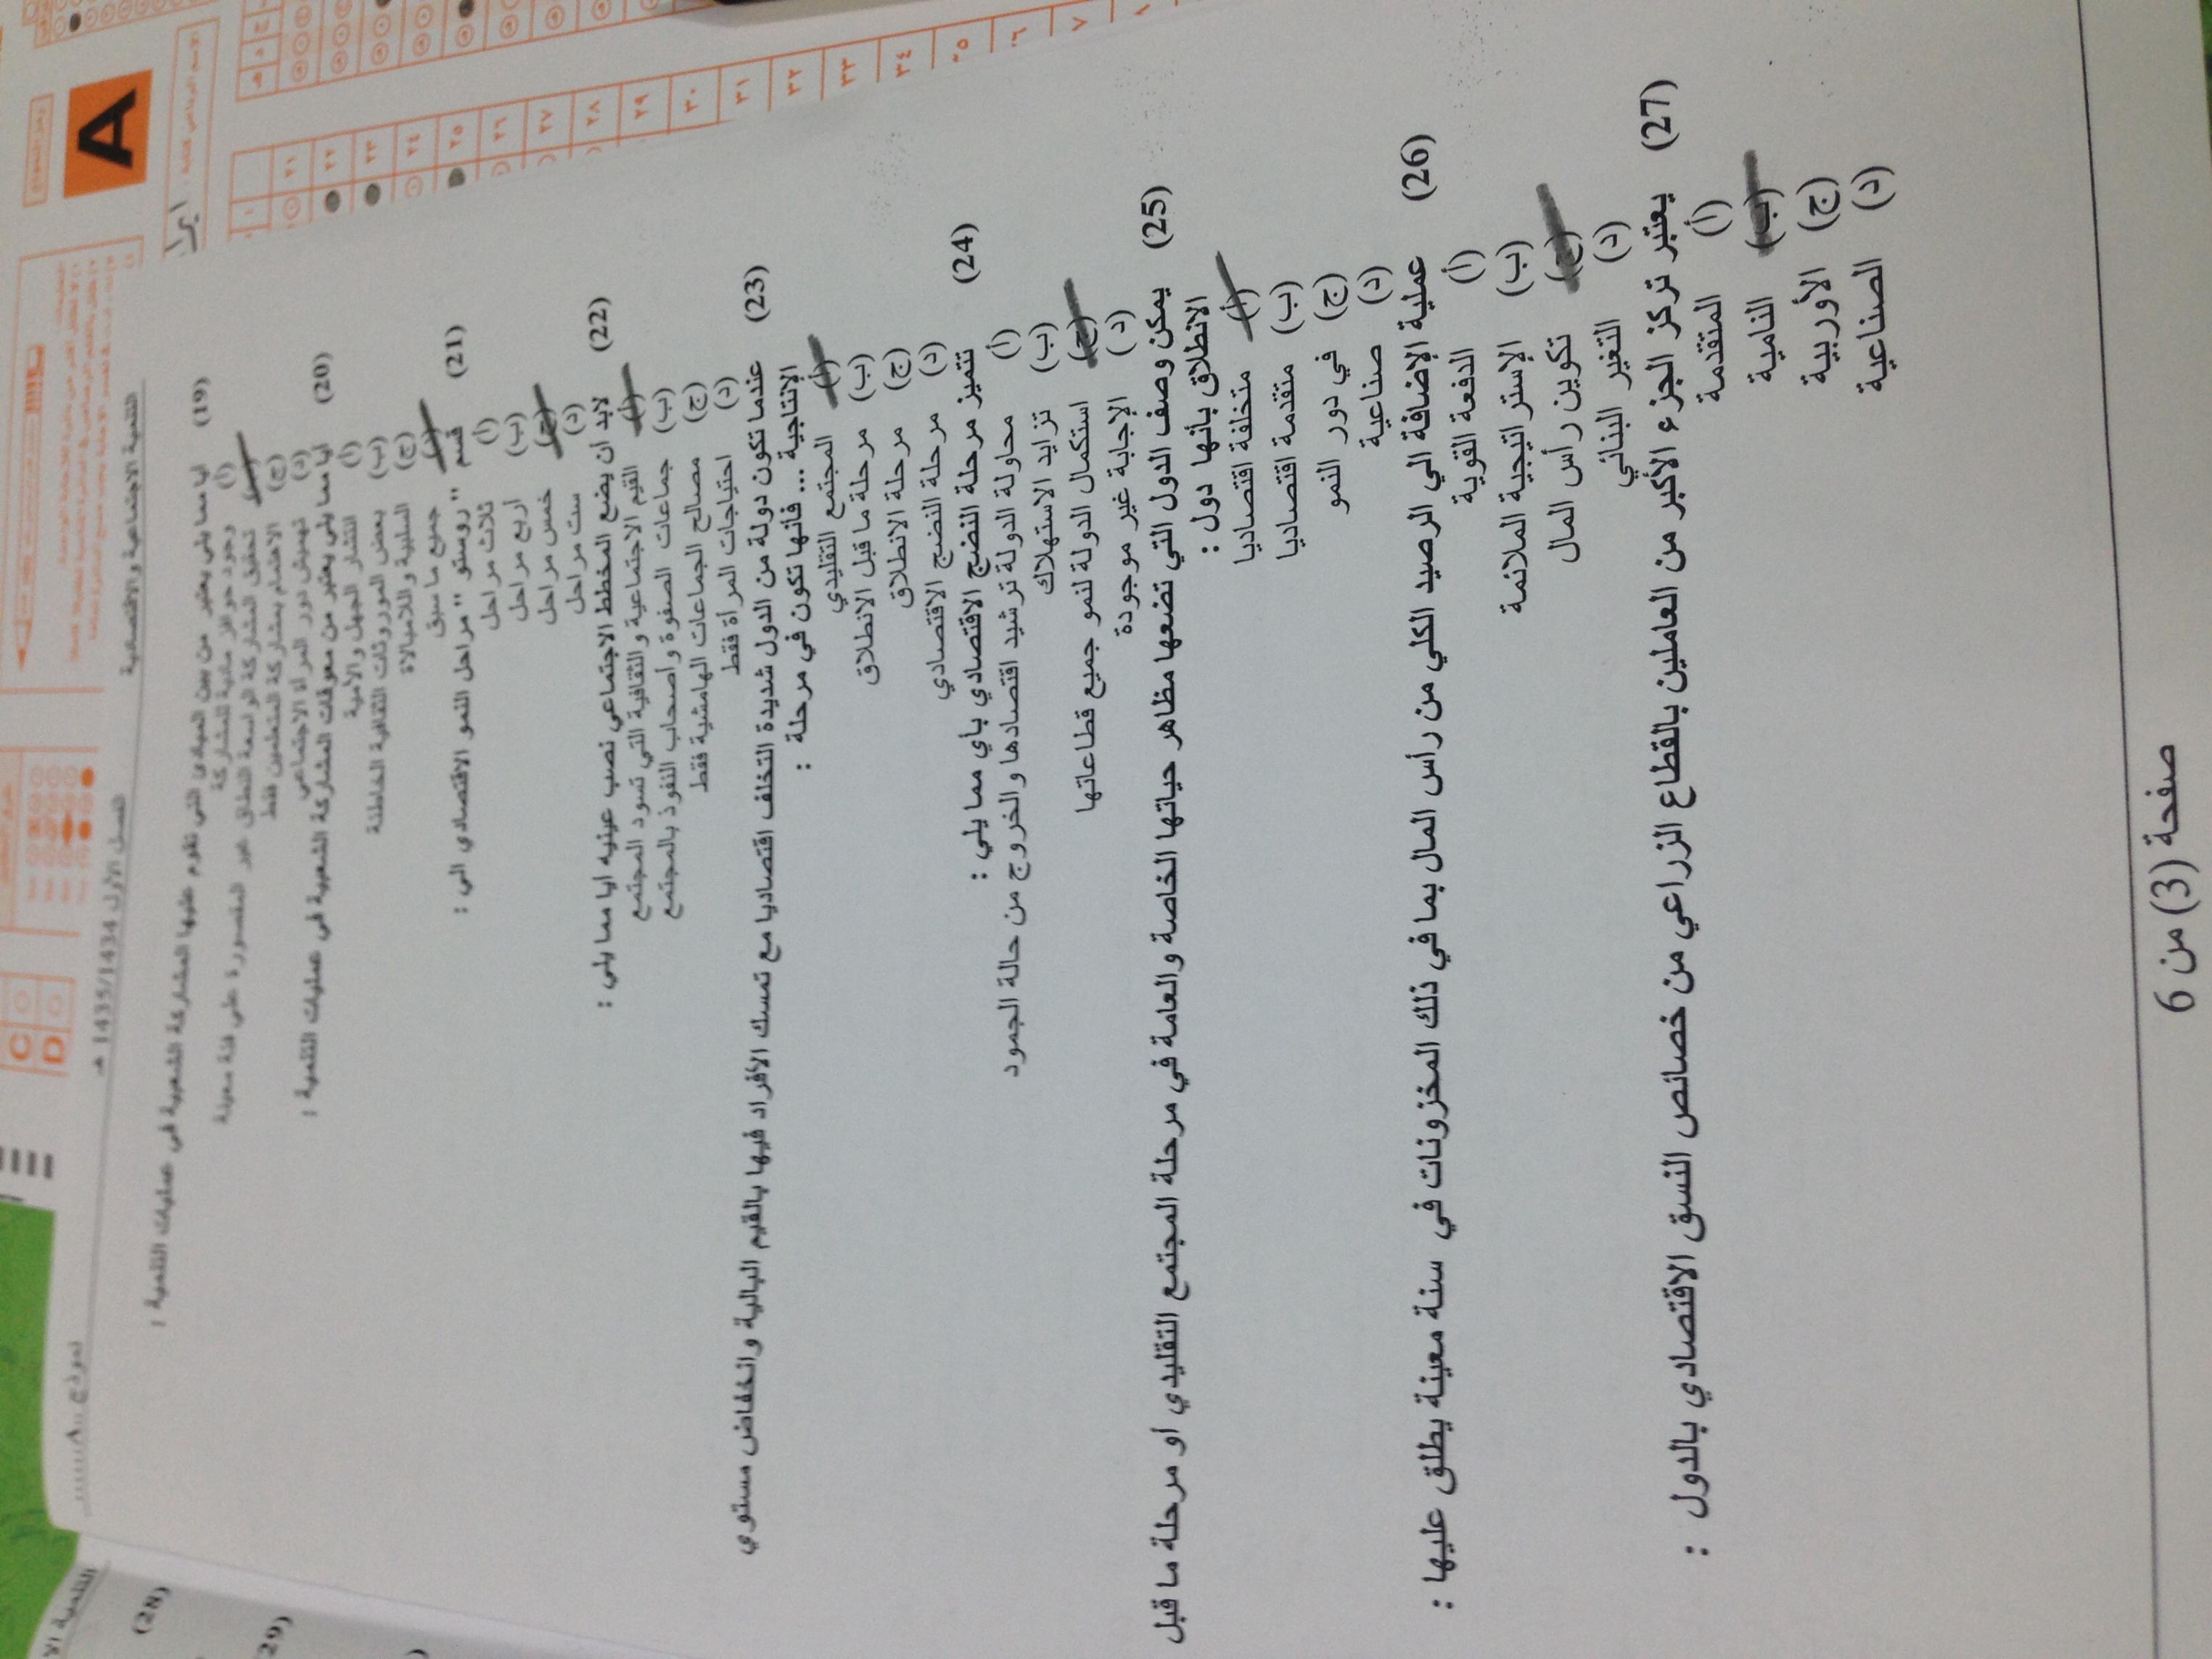 A
التنمية الاجتماعية والاقتصادية
الفصل الأول 1435/1434 هـ
نموذج A
(19) أيا مما يلي يعتبر من بين المبادئ التي تقوم عليها المشاركة الشعبية في عمليات التنمية :
(أ) وجود حوافز مادية للمشاركة
تحقيق المشاركة الواسعة النطاق غير المقصورة على فئة معينة
(ج) الاهتمام بمشاركة المتعلمين فقط
(د) تهميش دور المرأة الاجتماعي
(20) أيا مما يلي يعتبر من معوقات المشاركة الشعبية في عمليات التنمية :
(أ) انتشار الجهل والأمية
(ب) بعض الموروثات الثقافية الخاطئة
(ج) السلبية واللامبالاة
(د) جميع ما سبق
(21) قسم " روستو " مراحل النمو الاقتصادي الى :
(أ) ثلاث مراحل
(ب) أربع مراحل
(ج) خمس مراحل
(د) ست مراحل
(22) لابد أن يضع المخطط الاجتماعي نصب عينيه أيا مما يلي :
(أ) القيم الاجتماعية والثقافية التي تسود المجتمع
(ب) جماعات الصفوة وأصحاب النفوذ بالمجتمع
(ج) مصالح الجماعات الهامشية فقط
(د) احتياجات المرأة فقط
(23) عندما تكون دولة من الدول شديدة التخلف اقتصاديا مع تمسك الأفراد فيها بالقيم البالية وانخفاض مستوي
الإنتاجية ... فأنها تكون في مرحلة :
(أ) المجتمع التقليدي
(ب) مرحلة ما قبل الانطلاق
(ج) مرحلة الانطلاق
(د) مرحلة النضج الاقتصادي
(24) تتميز مرحلة النضج الاقتصادي بأي مما يلي :
(أ) محاولة الدولة ترشيد اقتصادها والخروج من حالة الجمود
(ب) تزايد الاستهلاك
(ج) استكمال الدولة لنمو جميع قطاعاتها
(د) الإجابة غير موجودة
(25) يمكن وصف الدول التي تضعها مظاهر حياتها الخاصة والعامة في مرحلة المجتمع التقليدي أو مرحلة ما قبل
الانطلاق بأنها دول :
(أ) متخلفة اقتصاديا
(ب) متقدمة اقتصاديا
(ج) في دور النمو
(د) صناعية
(26) عملية الإضافة الي الرصيد الكلي من رأس المال بما في ذلك المخزونات في سنة معينة يطلق عليها :
(أ) الدفعة القوية
(ب) الإستراتيجية الملائمة
(ج) تكوين رأس المال
(د) التغير البنائي
(27) يعتبر تركز الجزء الأكبر من العاملين بالقطاع الزراعي من خصائص النسق الاقتصادي بالدول :
(أ) المتقدمة
(ب) النامية
(ج) الأوربية
(د) الصناعية
صفحة (3) من 6
(28)
29)
C
D
٢١
٢٢
٢٣
٢٤
٢٥
٢٦
٢٧
٢٨
٢٩
٣٠
٣١
٣٢
٣٣
٣٤